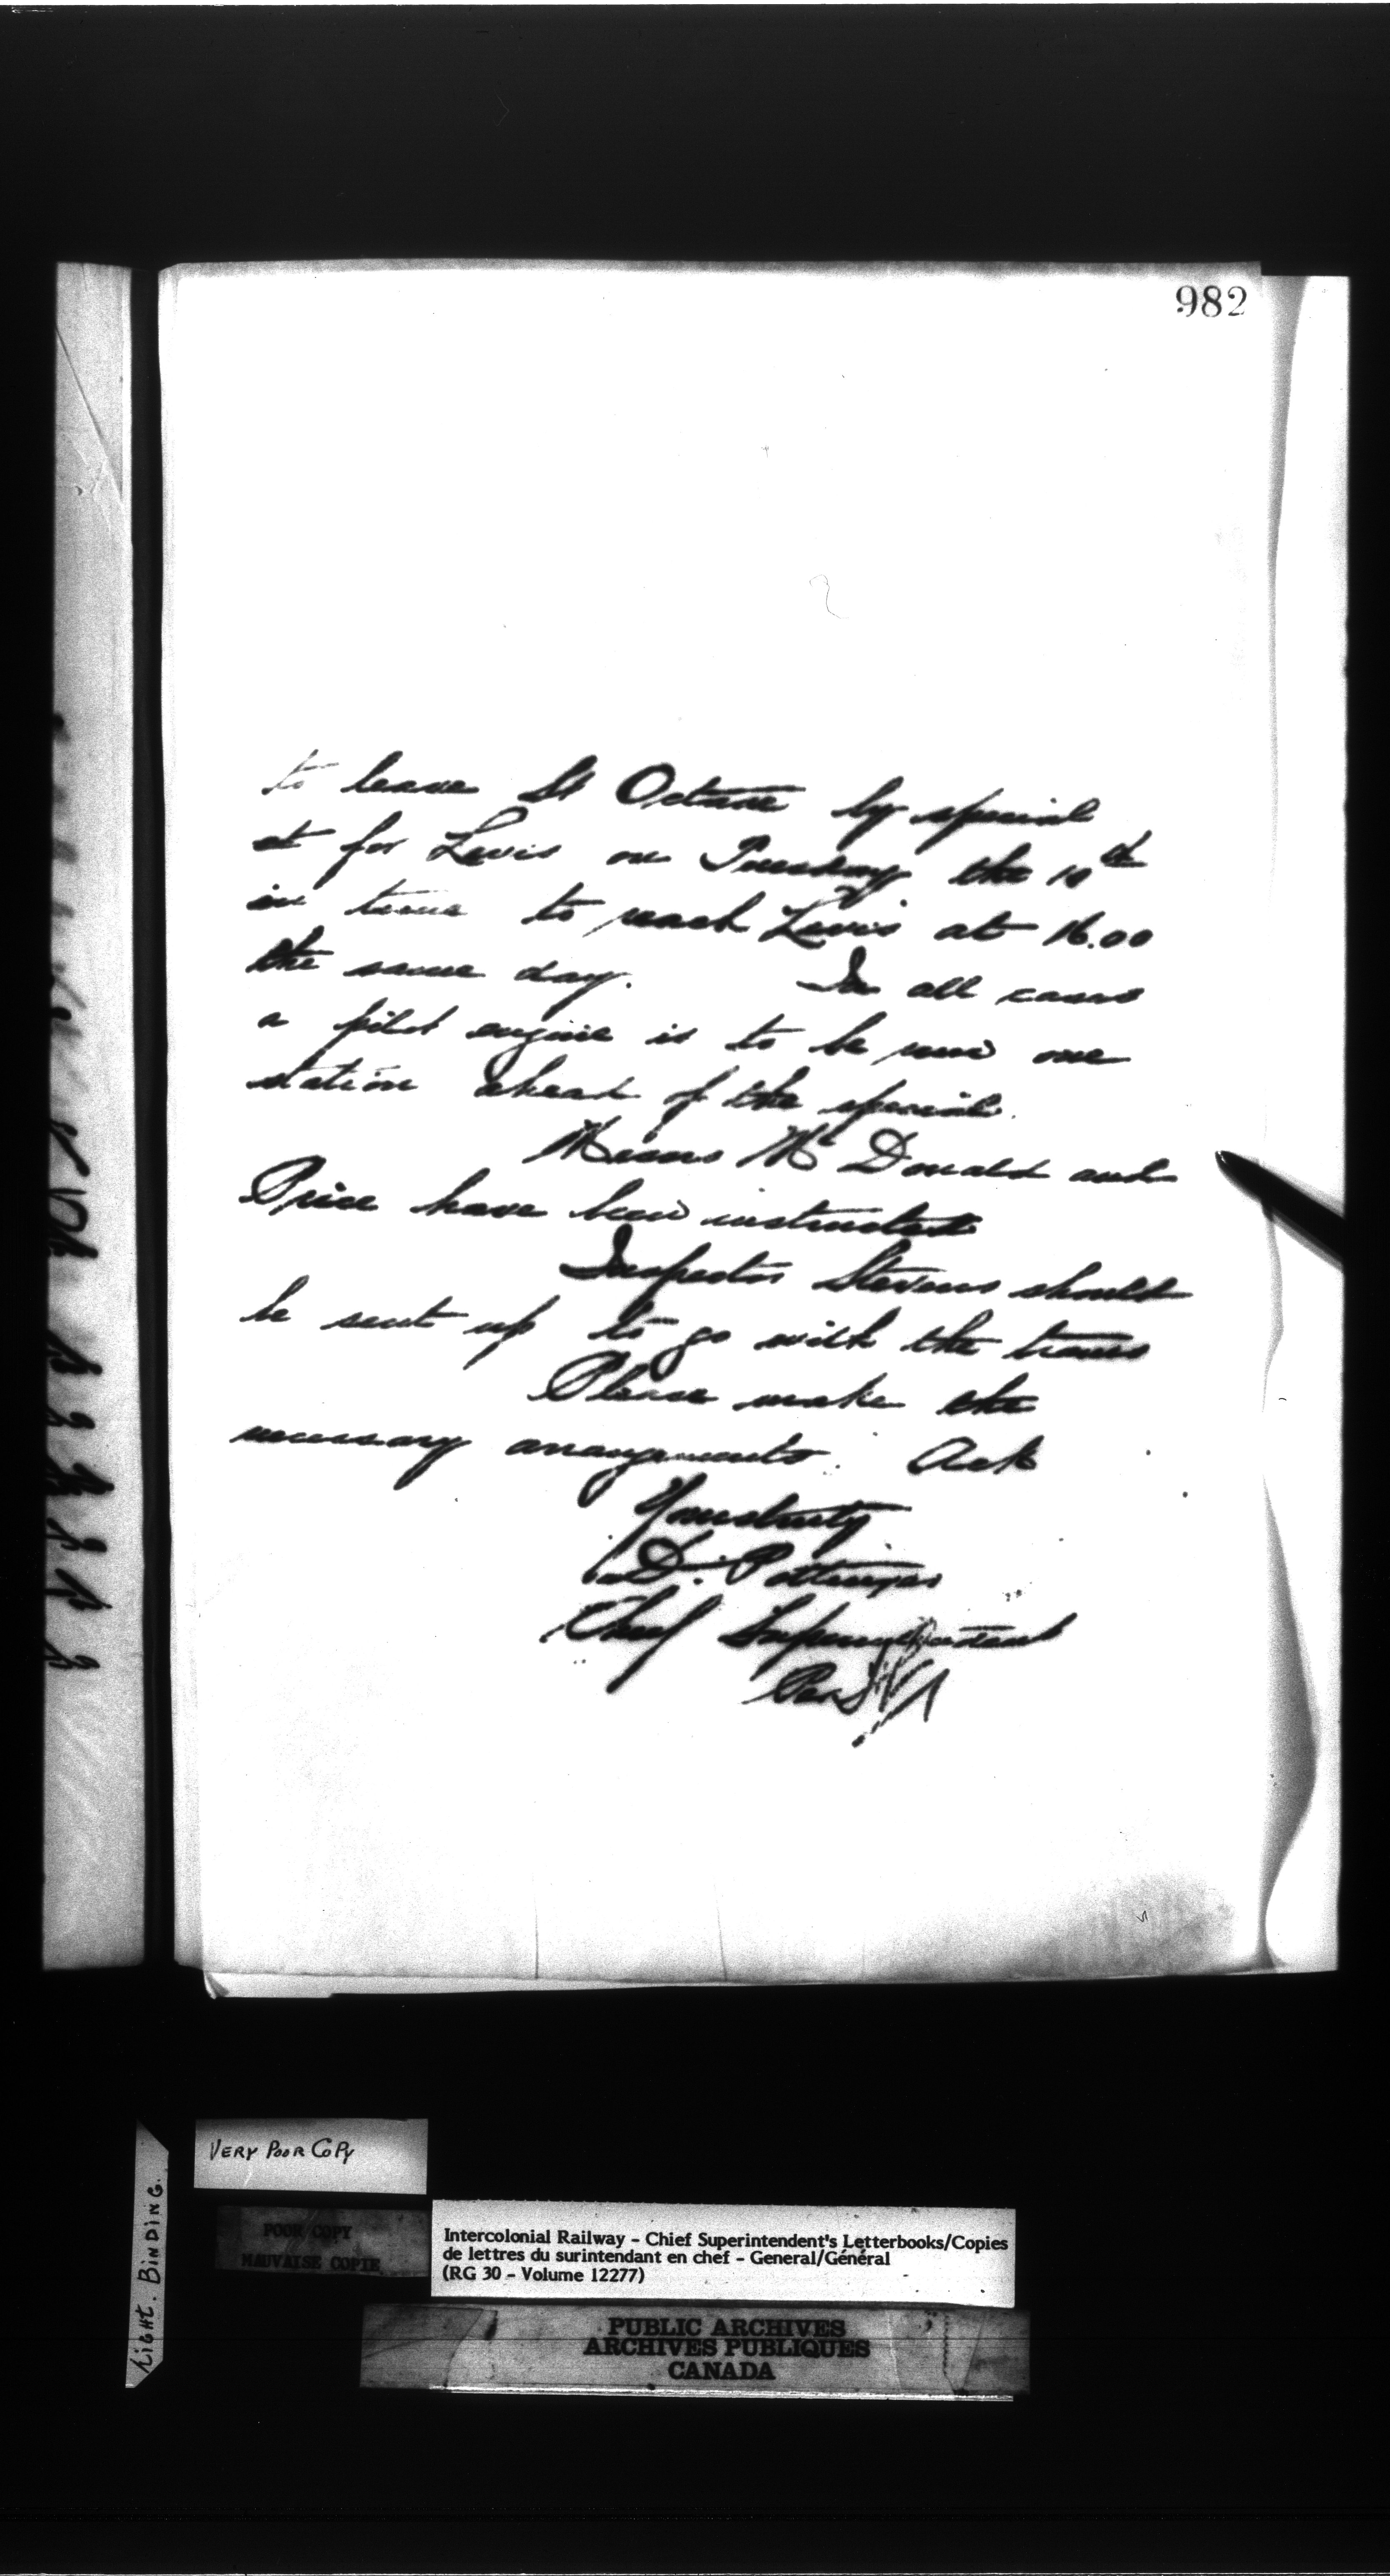 982
to leave St Octave by special
at for Levis on Tuesday the 10th
in time to reach Levis at 16.00
the same day. In all cases
a pilot engine is to be run one
station ahead of the special.
Messrs McDonald and
Price have been instructed
Inspector Stevens should
be sent up to go with the trains
Please make the
necessary arrangements. Ack
Yours truly
D. Pottinger
Chief Superintendent
Per
VERY POOR COPY
LIGHT. BINDING.
POOR COPY
MAUVAISE COPIE
Intercolonial Railway - Chief Superintendent's Letterbooks/Copies
de lettres du surintendant en chef - General/Général
(RG 30 - Volume 12277)
PUBLIC ARCHIVES
ARCHIVES PUBLIQUES
CANADA